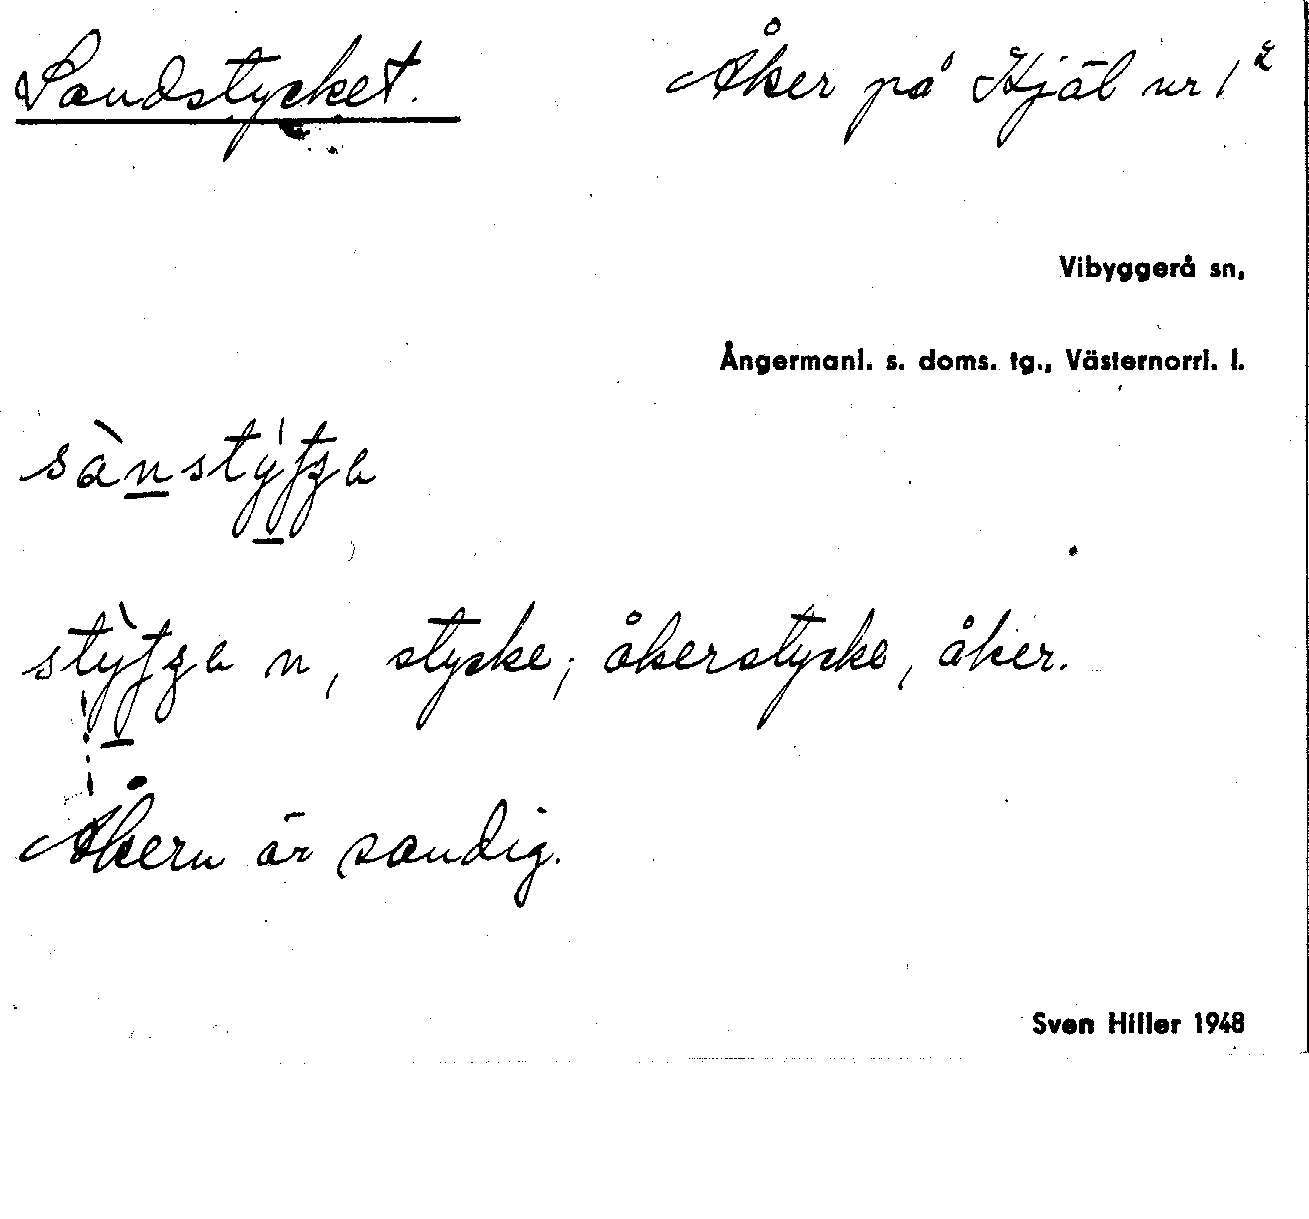 Sandstycket. Åker på Hjäl nr 1²
Vibyggerå sn,
Ångermanl. s. doms. tg., Västernorrl. l.
n, stycke; åkerstycke, åker.
Åkern är sandig.
Sven Hiller 1948